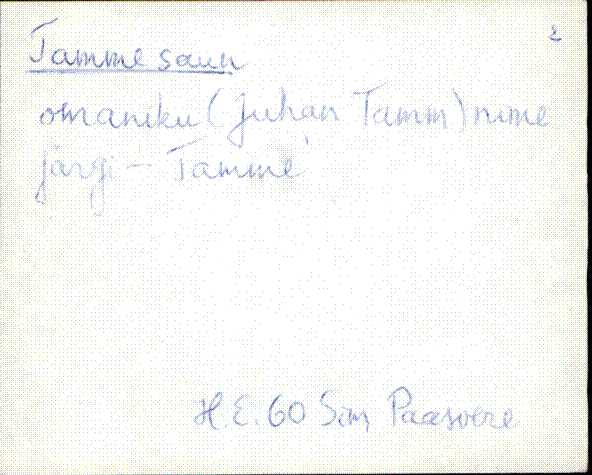 2
Tamme saun
omaniku (Juhan Tamm) nime
järgi – Tamme'
H. E. 60 Sim, Paasvere